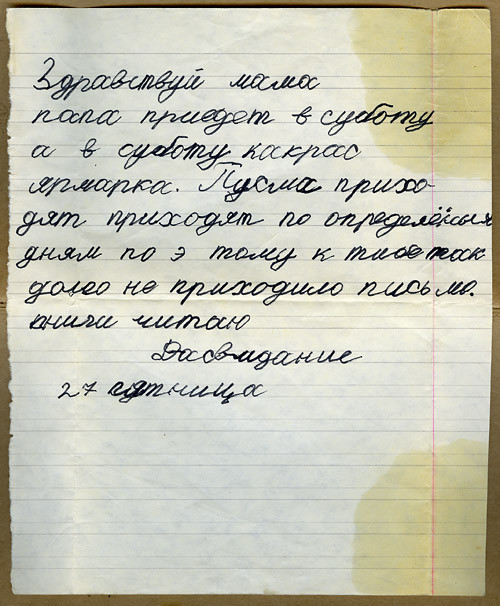 Здравствуй мама
папа приедет в субботу
а в субботу какрас
ярмарка. Писма прихо-
дят приходят по определёным
дням по э тому к тибе так
долго не приходило письмо.
книги читаю
Дасвидание
27 пятница